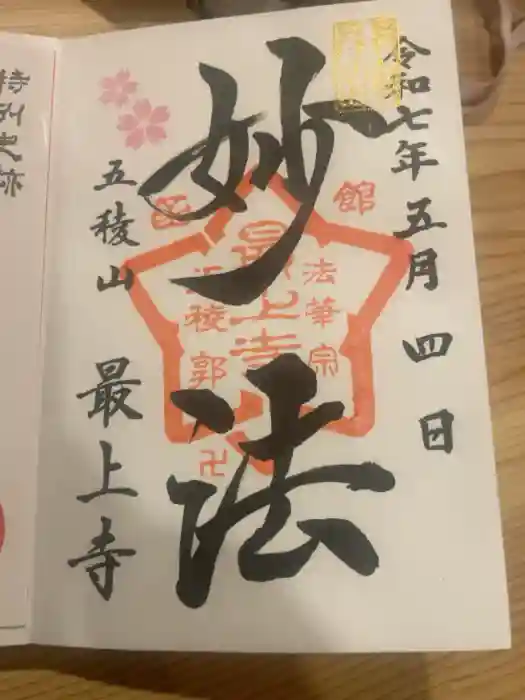 令和七年五月四日
妙法
五稜山 最上寺
函館
法華宗
最上寺
五稜郭
卍
特別史跡